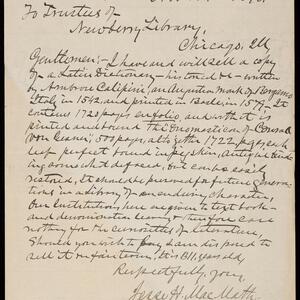 To Trustees of
Newberry Library,
Chicago, Ill.
Gentlemen;- I have and will sell a copy
of a Latin Dictionary - historical &c - written
by Ambrose Calipini, an Augustin monk of Bergamo
Italy in 1542, and printed in Basle, in 157. It
contains 1723 pages folio, and with it is
printed and bound the Onomasticon of Conrad
Von Gesner, 50 pages, altogether 1722 pages, each
leaf perfect, bound in pig skin, antique bind
ing somewhat defaced, but can be easily
restored, it should be personal for future genera-
tions in a library of an enduring character,
Our institutions here are given to text book
and denominational leaning & therefore care
nothing for the curiosities of literature,
Should you wish to buy I am disposed to
sell it on fair terms, it is 311 years old,
Respectfully, yours,
Jesse H. Mac Math